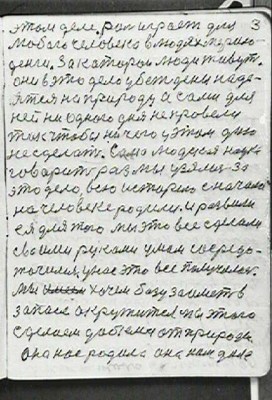 этом деле. Роль играет для 3
любого человека в людях тепло
деньги. За которой люди живут.
они в это дело убеждены надея-
ятся на природу а сами для
ней ни одного дня не провели
так чтобы ничего у этом духо
не сделать. Сама людская наука
говорить раз мы взялись за
это дело, всю историю сначала
на человеке родили. и развили
ея для того мы это все сделали
своими руками умом сосредо-
точился, у нас это все получилось.
мы хочем базу заиметь в
запасе окружится на этого
сделаем добычи от природы.
она нас родила она нам дала